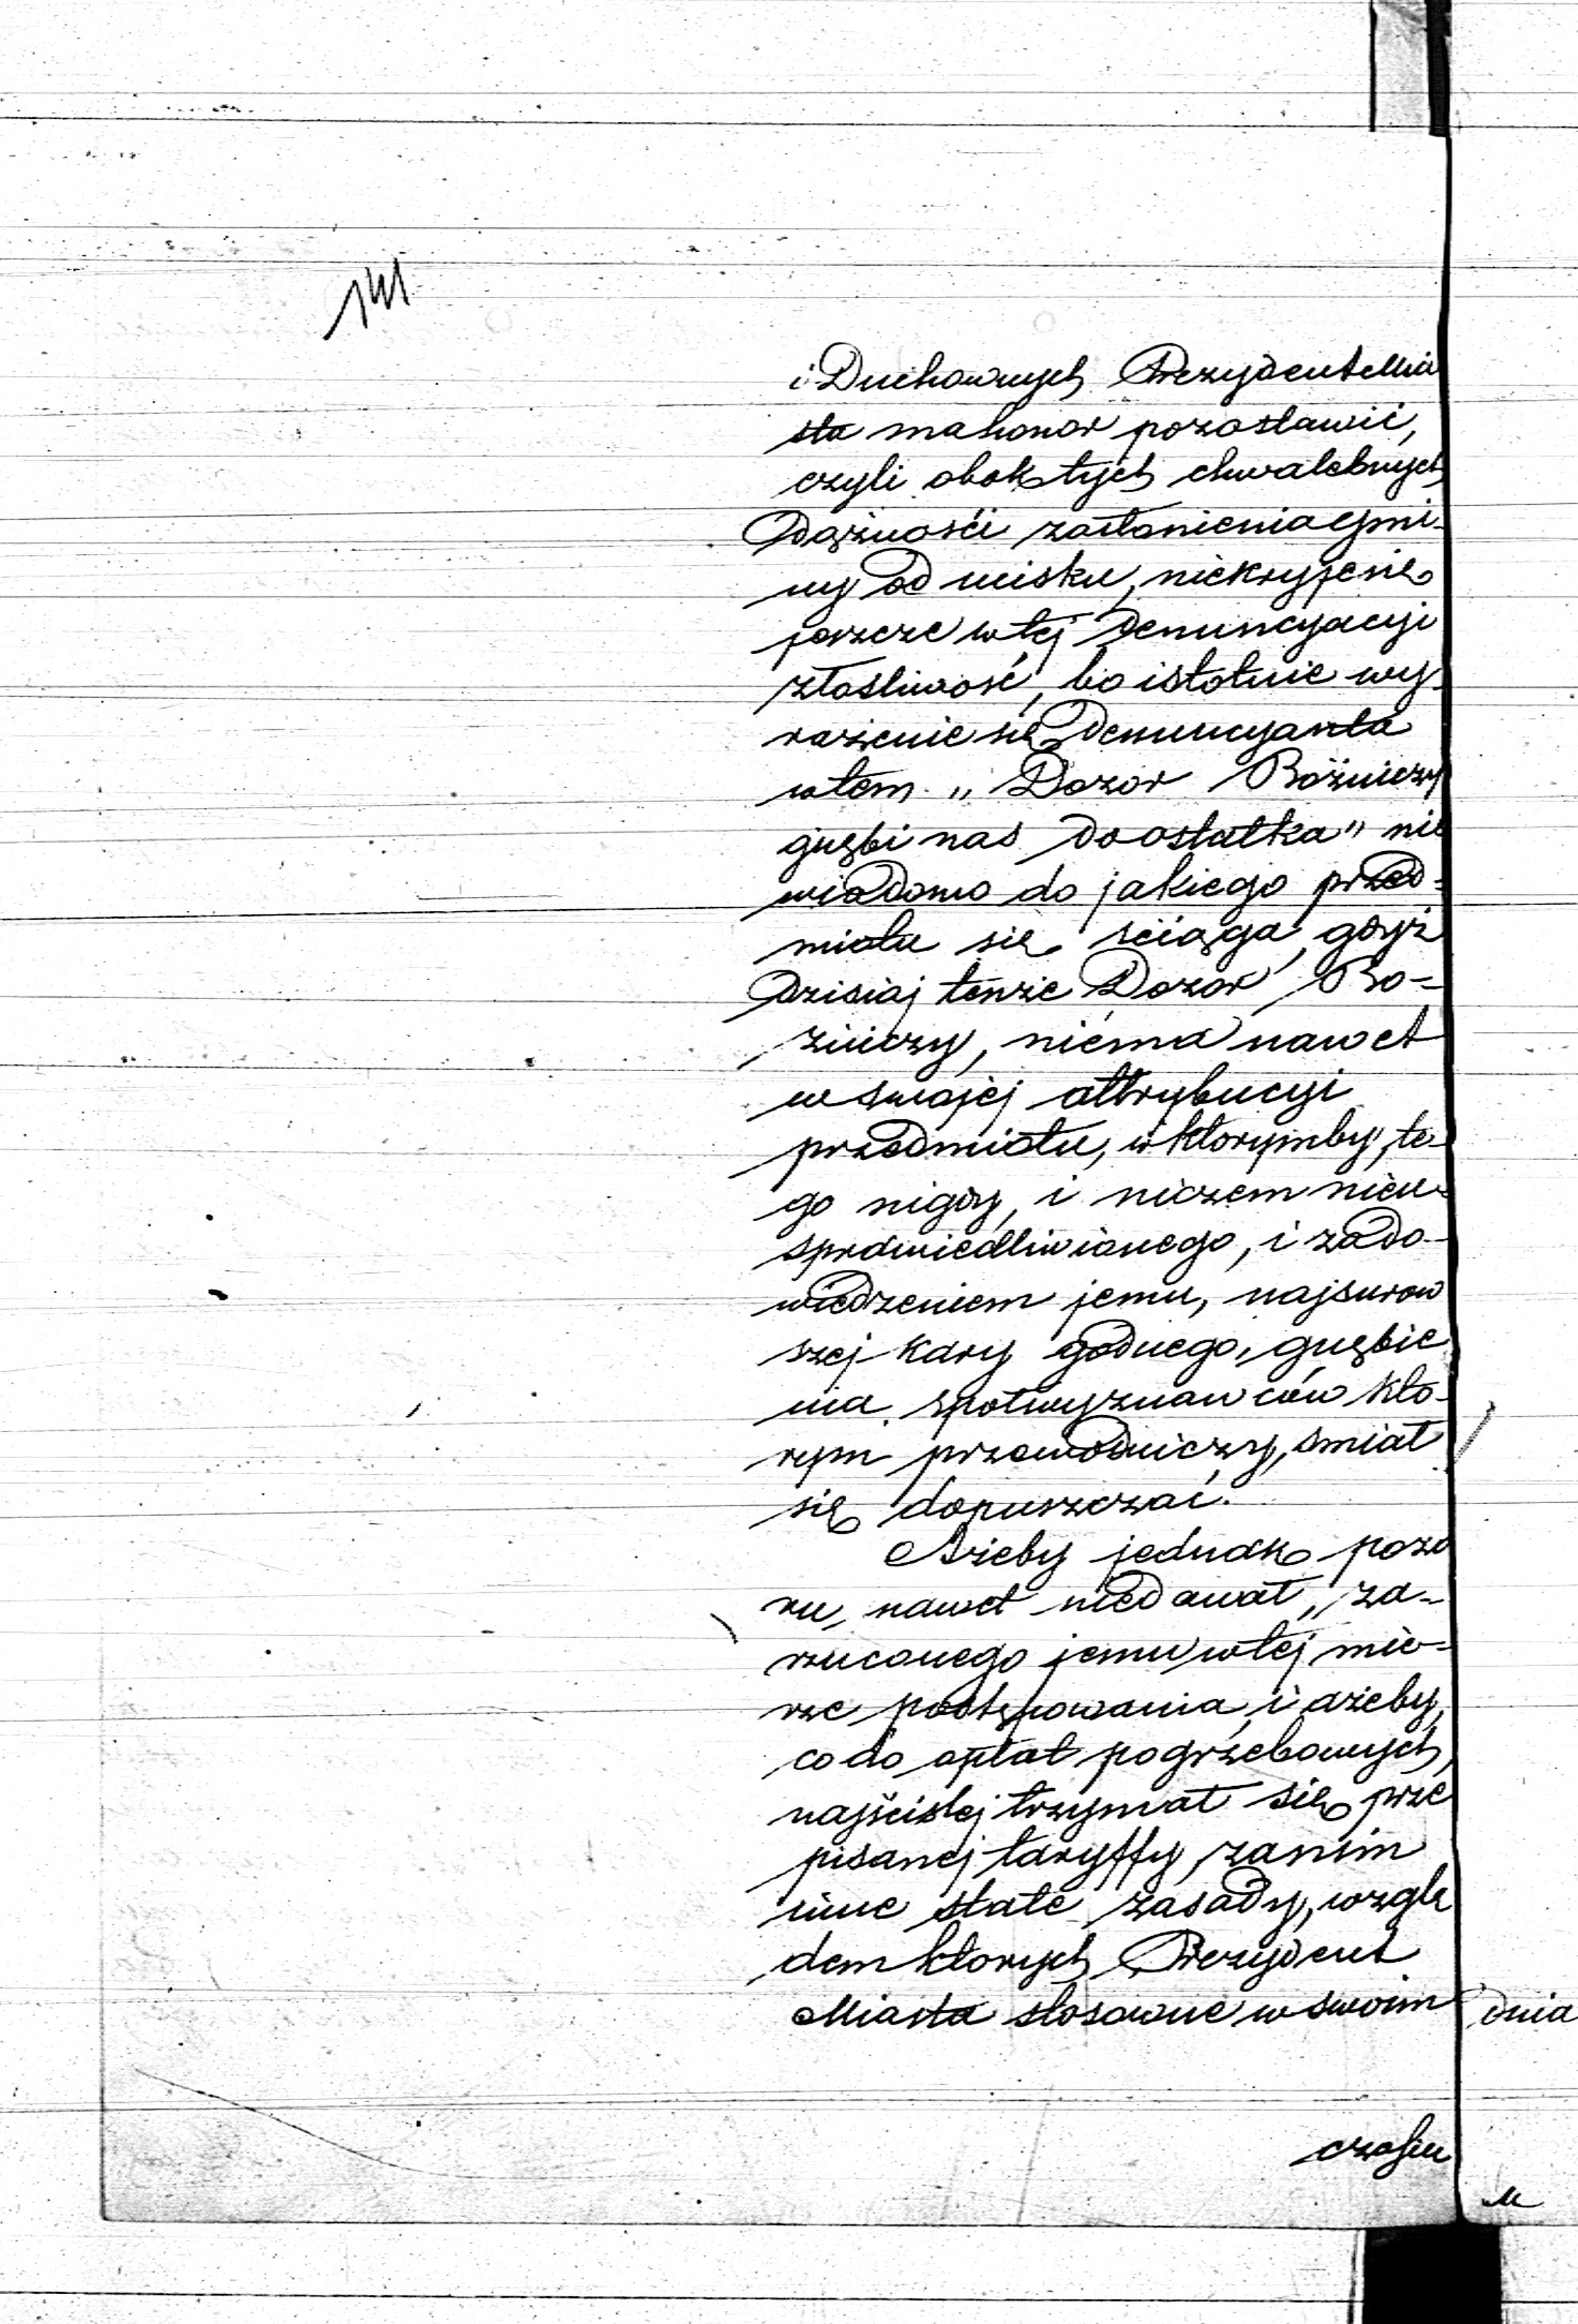 141
i Duchownych Prezydent Mia
sta ma honor pozostawić,
czyli obok tych chwalebnych
dążności zasłonienia gmi-
ny od ucisku, niekryje się
jeszcze w tej denuncyacyi
złośliwość, bo istotnie wy-
rażenie się Denuncyanta
w tem „Dozor Bóżniczy
gnębi nas do ostatka" nie
wiadomo do jakiego przed-
miotu się ściąga, gdyż
dzisiaj tenże Dozor Bo-
żniczy, niema nawet
w swojej attrybucyi
przedmiotu, w ktorymby, te-
go nigdy, i niczem nieu-
sprawiedliwionego, i za do-
wiedzeniem jemu, najsurow
szej kary godnego, gnębie
nia społwyznawców kto-
rym przewodniczy, smiał
się dopuszczać.
Ażeby jednak pozo
ru, nawet niedawał, za-
rzuconego jemu w tej mie-
rze postępowania, i ażeby,
co do opłat pogrzebowych,
najściślej trzymał się prze
pisanej taryffy, zanim
inne stałe zasady, wzglę
dem ktorych Prezydent
Miasta stosowne w swoim
dnia
czasie